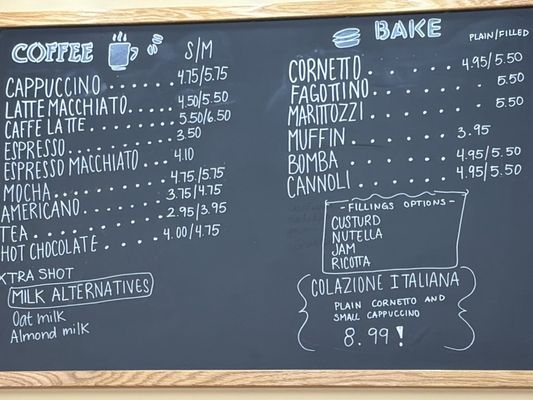 COFFEE S/M
CAPPUCCINO....... 4.75/5.75
LATTE MACCHIATO.... 4.50/5.50
CAFFE LATTE........ 5.50/6.50
ESPRESSO........ 3.50
ESPRESSO MACCHIATO... 4.10
MOCHA......... 4.75/5.75
AMERICANO...... 3.75/4.75
TEA.......... 2.95/3.95
HOT CHOCOLATE..... 4.00/4.75
XTRA SHOT
MILK ALTERNATIVES
Oat milk
Almond milk
BAKE PLAIN/FILLED
CORNETTO...... 4.95/5.50
FAGOTTINO...... 5.50
MARITTOZZI...... 5.50
MUFFIN...... 3.95
BOMBA...... 4.95/5.50
CANNOLI...... 4.95/5.50
-FILLINGS OPTIONS-
CUSTURD
NUTELLA
JAM
RICOTTA
COLAZIONE ITALIANA
PLAIN CORNETTO AND
SMALL CAPPUCCINO
8.99!